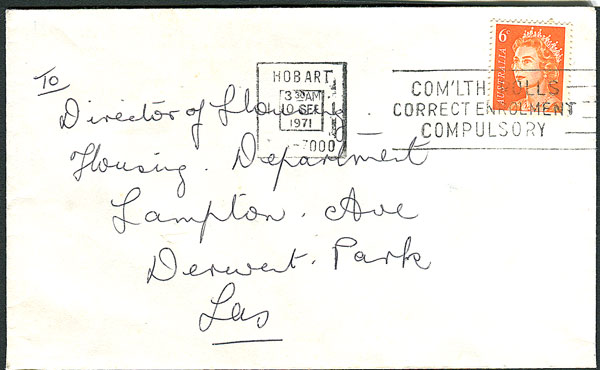 To
Director of Housing
Housing. Department
Lampton. Ave
Derwent. Park
Tas
HOBART
3 30 AM
10 SEP
1971
7000
COM'LTH ROLLS
CORRECT ENROLMENT
COMPULSORY
6c
AUSTRALIA